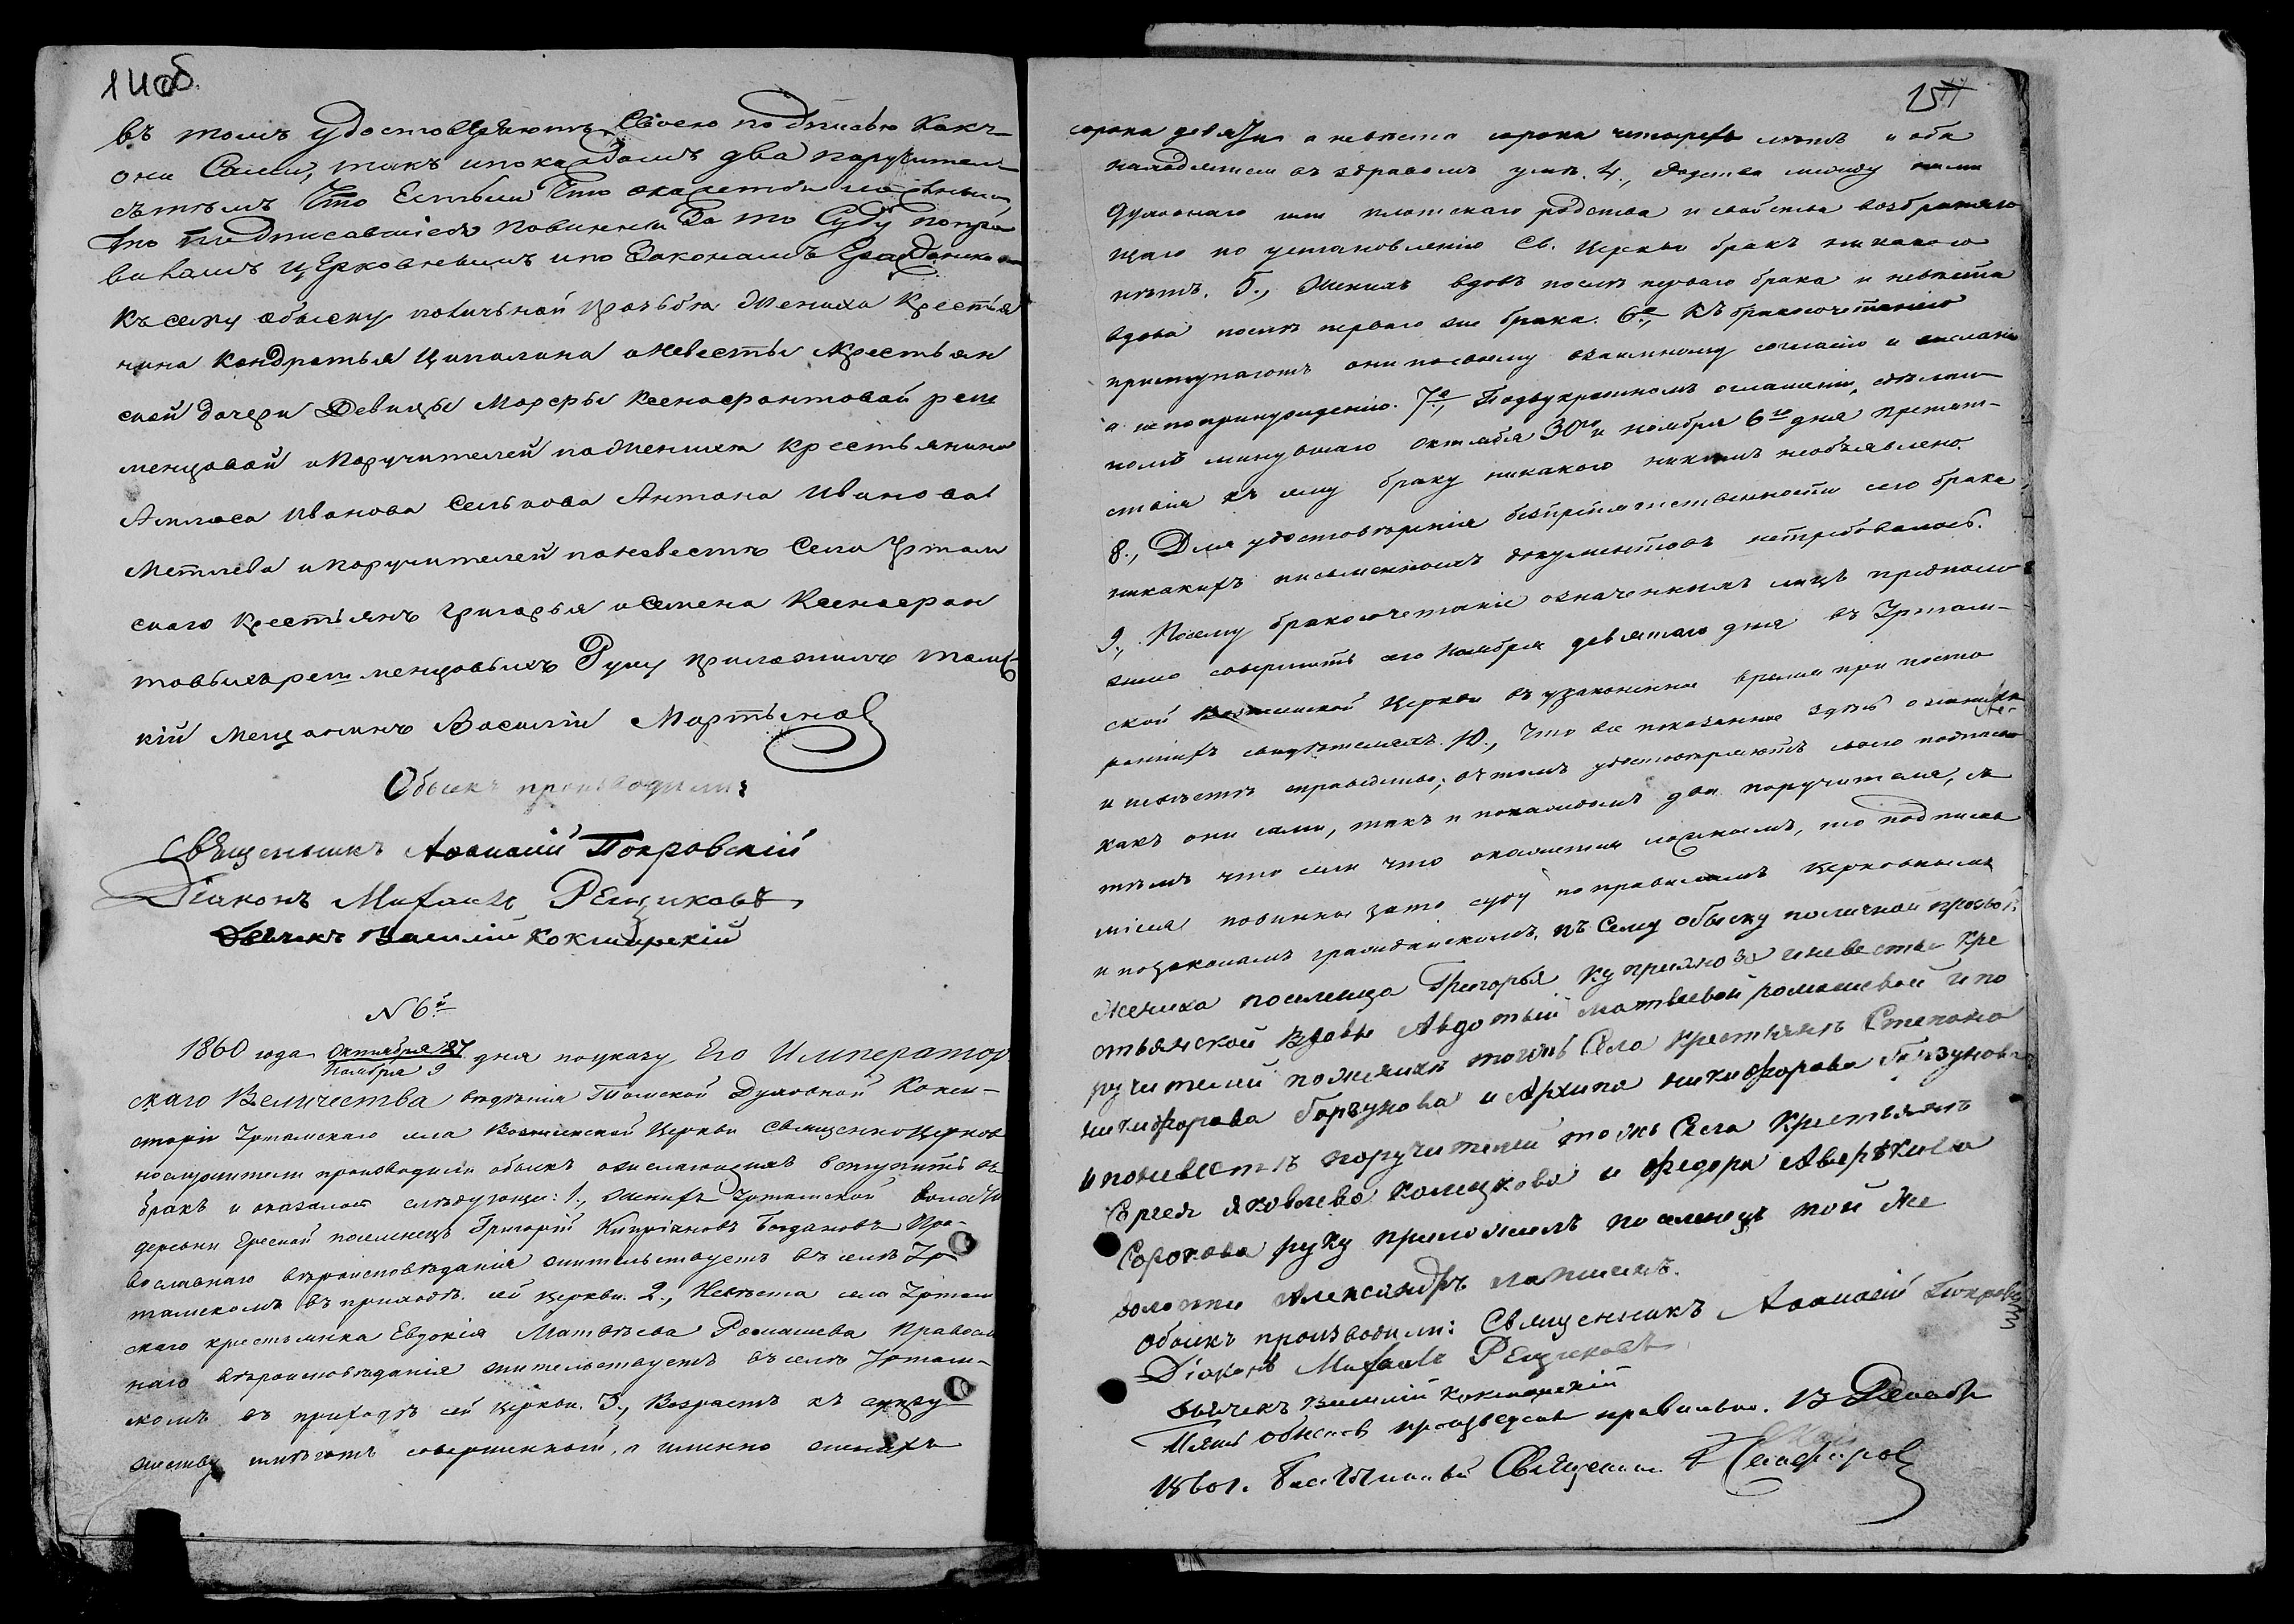 14об.
въ томъ удостовѣряютъ Своею подписью Какъ
они Сами, такъ и по каждомъ два поручителя
съ тѣмъ Что Естьли Что окажется ложнымъ
то подписавшіеся повинны За то Суду по пра
виламъ цЕрковнымъ и по Законамъ Гражданским
Къ сему обыску по личьной прозьбѣ Жениха Крестья
нина Кондратья Ципилина и Невесты Крестьян
ской дочери Девицы Марфы Ксенофонтовой реш
менцовой и Поручителей по Женихе Крестьянина
Амплоса Иванова Селькова Антона Иванова
Метлева и поручителей по невесте Села Иртам
скаго Крестьянъ Григорья и Семена Ксенофон
товыхъ решменцовыхъ Руку приложилъ томс
кій Мещанинъ Василій Мартыновъ
Обыскъ производили:
Священникъ Аѳанасій Покровскій
Діаконъ Михаилъ РЕщиковъ
Дьячекъ Василій Кокшарскій
N 6й
1860 года Октября 27 дня по указу Его Император
Ноября 9
скаго Величества вѣдѣнія Томской Духовной Конси-
сторіи Иртамскаго села Вознесенской Церкви священноцерков
нослужители производили обыскъ о желающихъ вступить въ
бракъ и оказалось слѣдующее: 1., Женихъ Иртамской волости
деревни Ересной поселенецъ Григорій Кипріановъ Богдановъ Пра-
вославнаго вѣроисповѣданія жительствуетъ въ селѣ Ир
тамскомъ въ приходѣ сей церкви. 2., Невѣста села Иртам
скаго крестьянка Евдокія Матвѣева Ромашева Правосл
наго вѣроисповѣданія жительствуетъ въ селѣ Иртам-
скомъ въ приходѣ сей церкви. 3., Возрастъ къ супру
жеству имѣютъ совершенный, а именно женихъ
15
сорока девяти а невѣста сорока четырехъ лѣтъ и оба
находятся въ здравомъ умѣ. 4., Родства между ними
духовнаго или плотскаго родства и свойства возбраняю
щаго по установленію Св. Церкви бракъ никакого
нѣтъ. 5., Женихъ вдовъ послѣ перваго брака и невѣста
вдова послѣ перваго же брака. 6е., Къ бракосочетанію
приступаютъ они по своему взаимному согласію и желанію
а не по принужденію. 7е., По двукратномъ оглашеніи, сдѣлан
номъ минувшаго октября 30го и ноября 6го дня препят-
ствія къ сему браку никакого никѣмъ не объявлено.
8., Для удостовѣренія безпрепятственности сего брака
никакихъ письменныхъ документовъ не требовалось.
9., Посему бракосочетаніе означенныхъ лицъ предполо
жено совершить сего Ноября девятаго дня въ Иртам-
ской Вознесенской Церкви въ узаконенное время при посто
роннихъ свидѣтеляхъ. 10., Что все показанное здѣсь о женихѣ
и невѣстѣ справедливо, въ томъ удостовѣряютъ своею подписью
какъ они сами, такъ и по каждомъ два поручителя, съ
тѣмъ что если что окажется ложнымъ, то подписав
шіеся повинны за то суду по правиламъ церковнымъ
и по законамъ гражданскимъ. Къ Сему обыску по личной прозьбѣ
жениха поселенца Григорья Куприянова и невесты Кре
стьянской вдовы Авдотьи матвеевой ромашевой и по
ручителей по женихѣ тогожъ Села Крестьянъ Степана
никифорова Горзунова и Архипа никифорова Горзунова
и по невестѣ поручителей тожъ Села Крестьянъ
Сергея яковлева Колецкова и Федора Аверькива
Сорокова руку приложилъ поселенецъ той же
волости Александръ Лапшинъ.
Обыскъ производили: Священникъ Аѳанасій Покровскій
Діаконъ Михаилъ РЕщиковъ
Дьячекъ Василій Кокшарскій
обыскъ произведенъ правильно. 13 Декабр
1860 г. Благочинный Священникъ